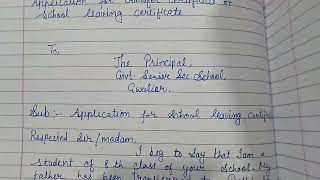 Application for transfer certificate or
School leaving certificate
To,
The Principal,
Govt Senior Sec School,
Gwalior.
Sub :- Application for School leaving certific
Respected Sir/madam,
I beg to say that I am a
student of 8th class of your School. My
father has been